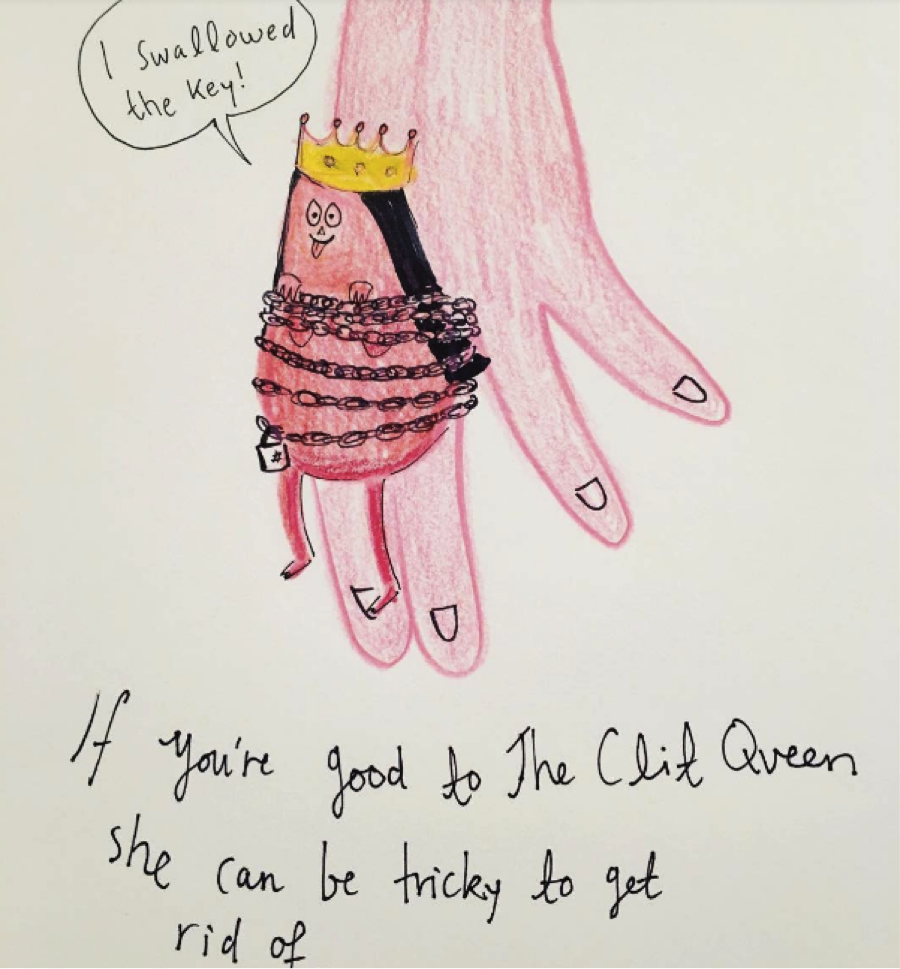 I swallowed
the key!
If you're good to The Clit Queen
she can be tricky to get
rid of